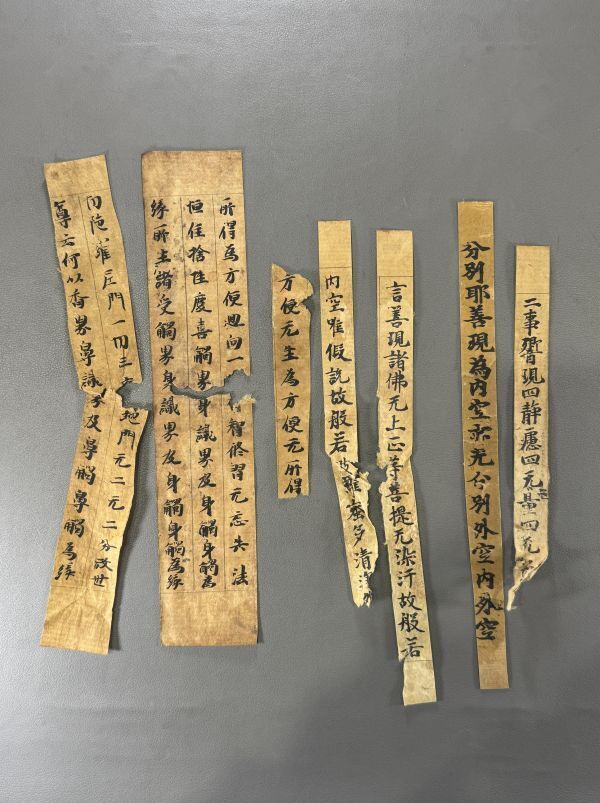 二事現四静慮四无量四无
分別耶善現為内空无分別外空内外空
言善現諸佛无上正等菩提无染汙故般若
内空唯假說故般若波羅蜜多清淨
方便无生為方便无所得
所得為方便迴向一智修習无忘失法
恒住捨性度喜觸界身識界及身觸身觸為
緣所生諸受觸界身識界及身觸身觸為緣
切陁羅尼門一切三地門无二无二分故世
尊云何以香界鼻識界及鼻觸鼻觸為緣